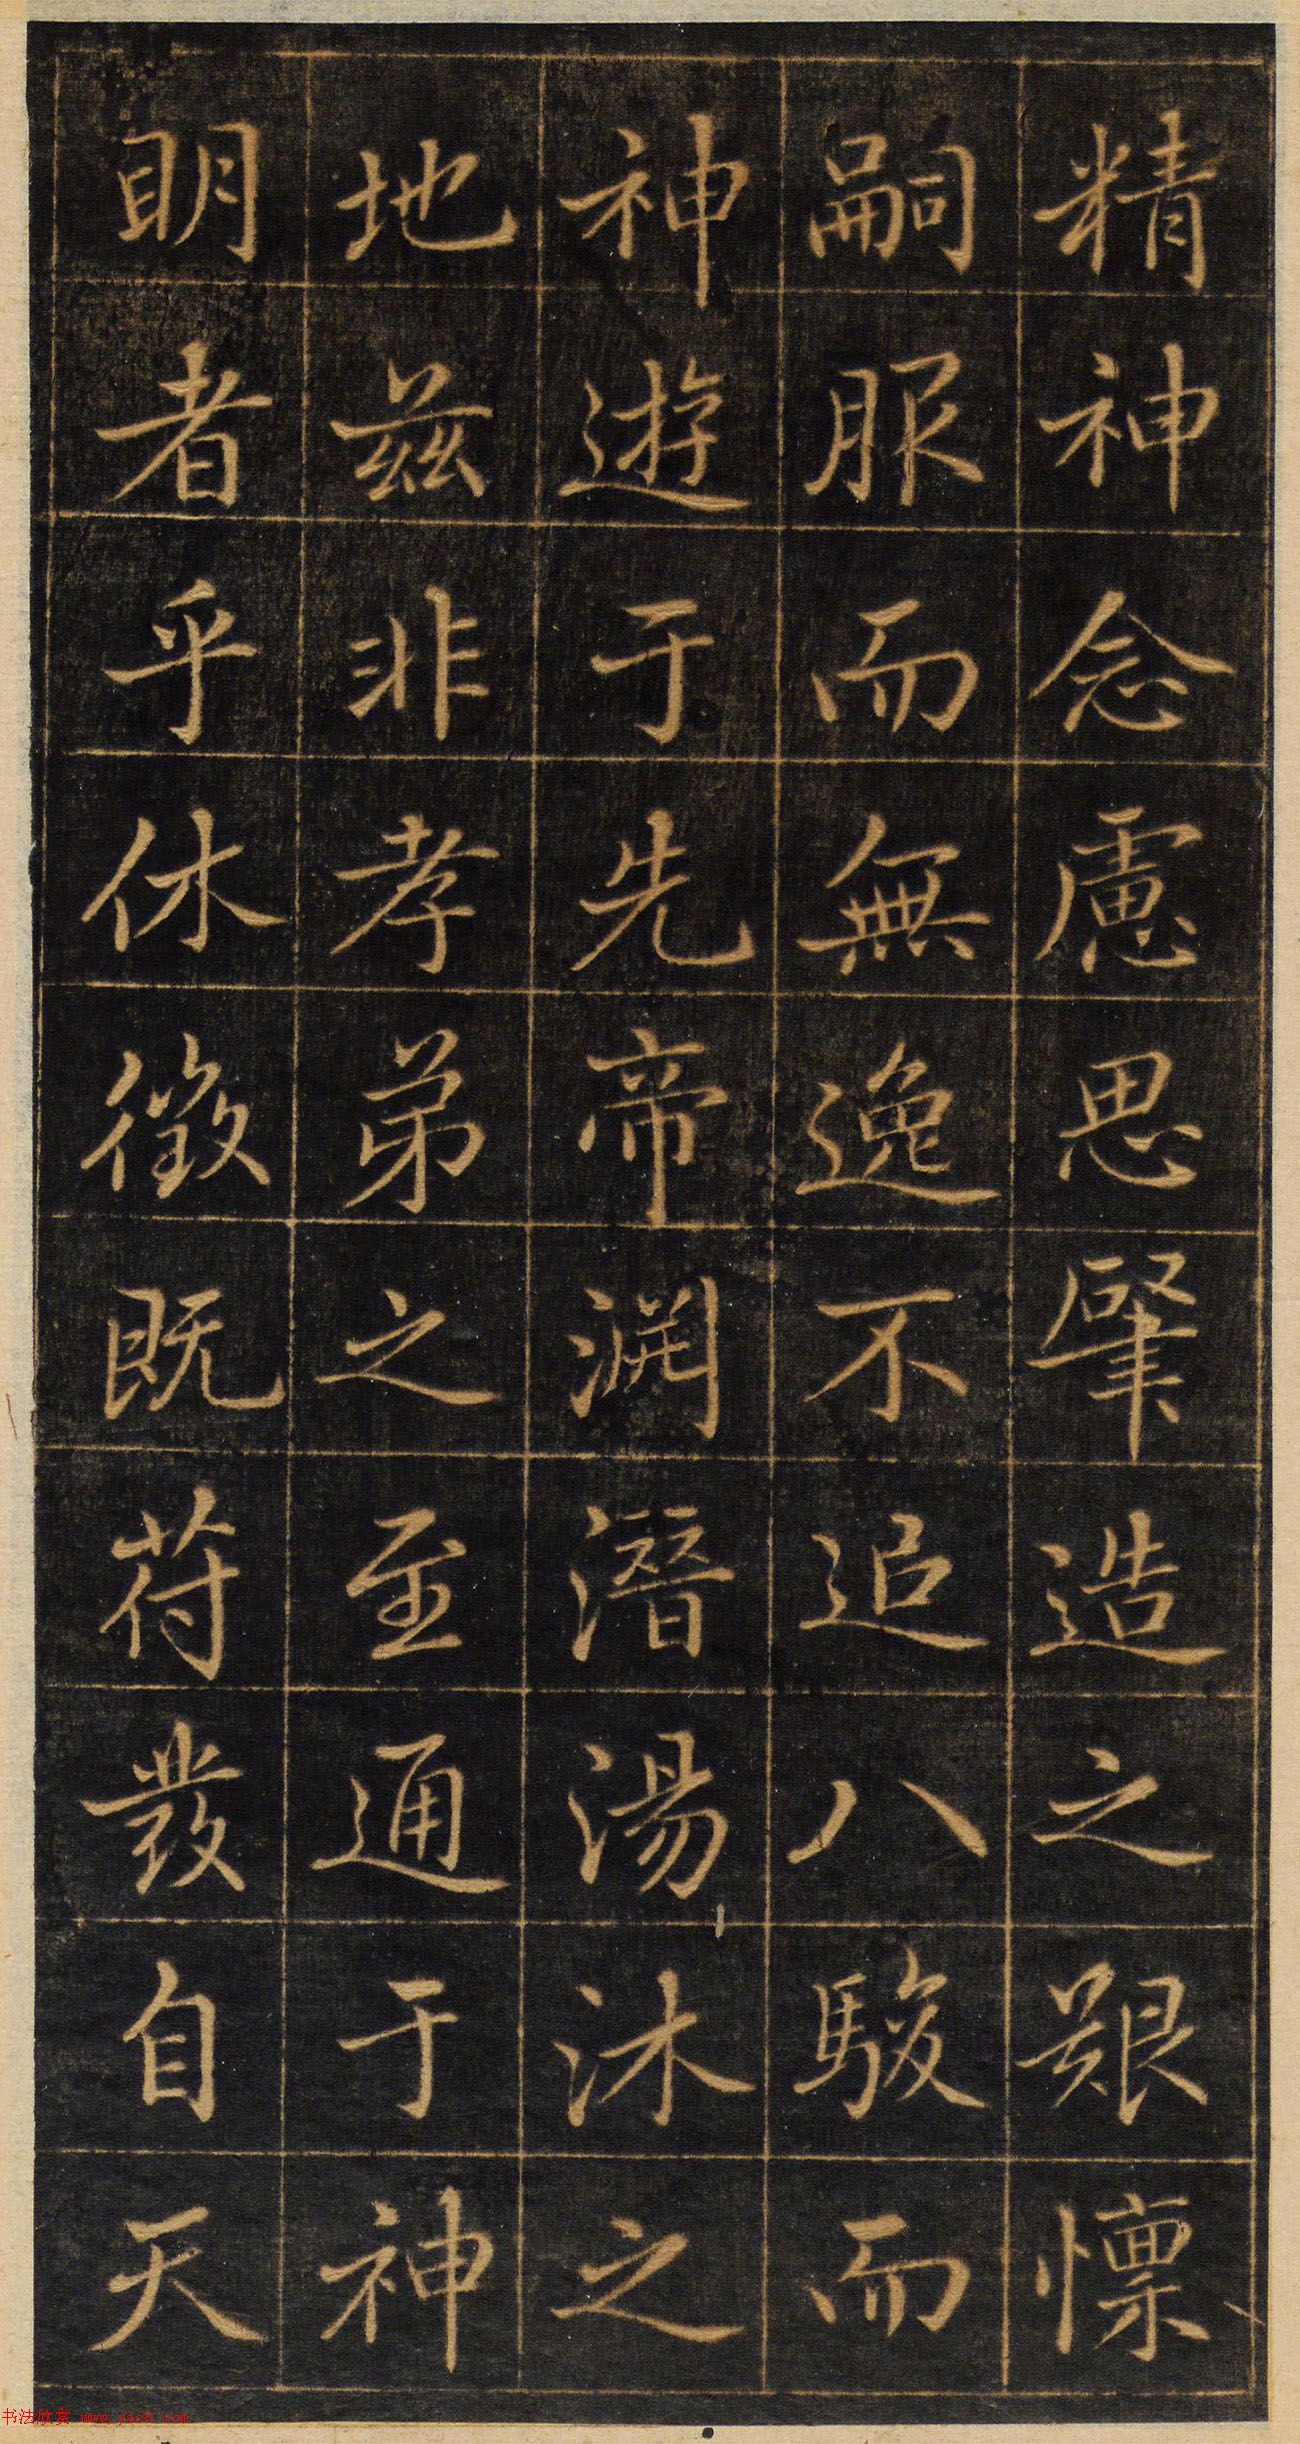 精神念慮思肇造之艱懍
嗣服而無逸不追八駿而
神遊于先帝渊潛湯沐之
地茲非孝弟之至通于神
明者乎休徵既荷發自天
书法欣赏 www.yac8.com